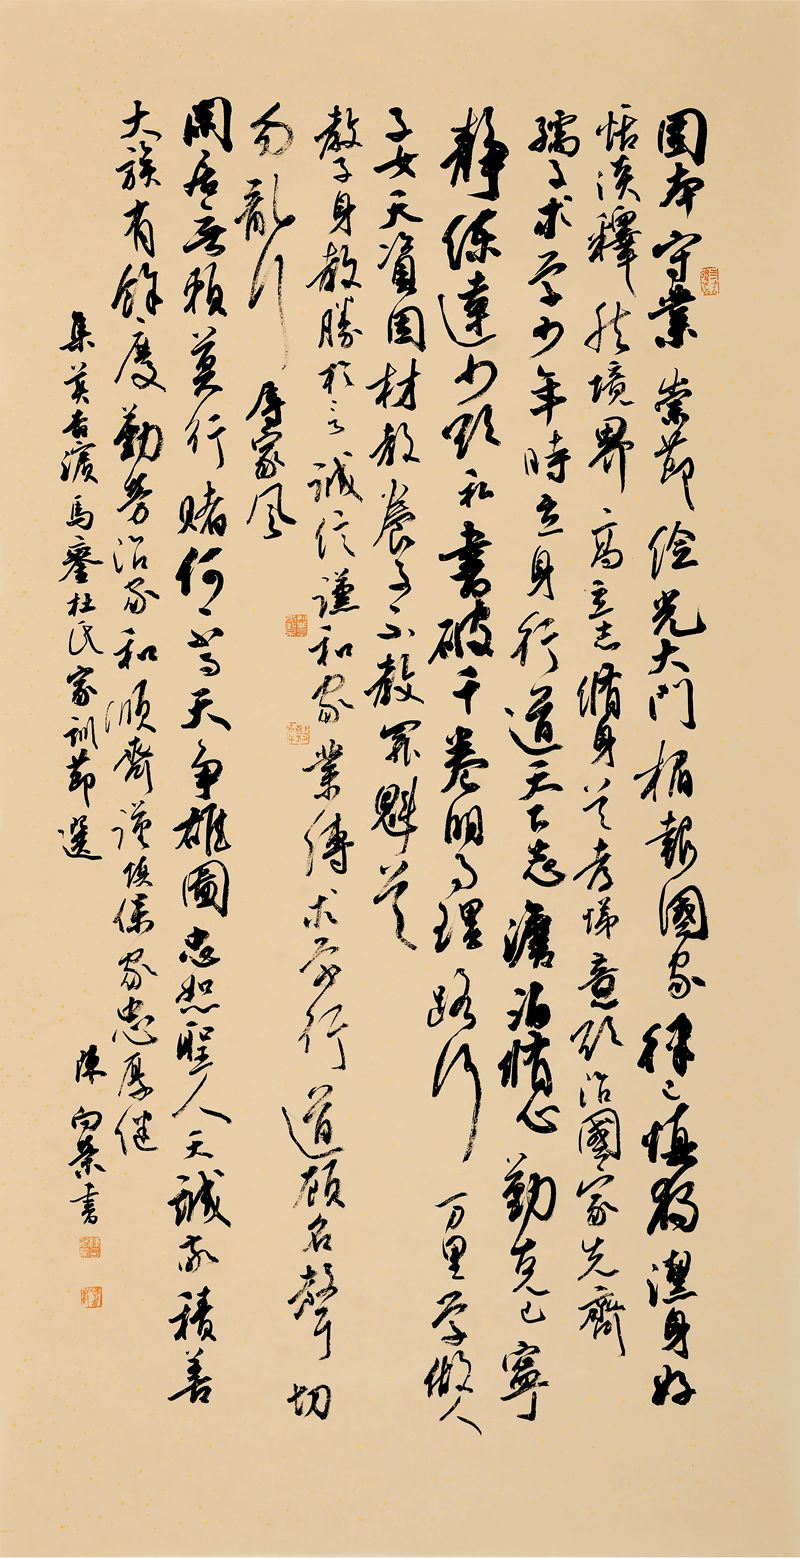 固本守業崇節儉光大門楣報國家律己慎獨潔身好
恬淡釋然境界高立志脩身首孝悌意欲治國家先齊
孺子求學少年時立身行道天下志澹泊脩心勤克己寧
靜練達少欲私書破千卷明事理路行万里學做人
子女天資因材教養子不教罪魁首
教子身教勝於言誠信謙和家業傳求學行道顧名聲切
勿亂行辱家風
閑居無賴莫行賭何天爭雄圖忠恕聖人天誠敬積善
大族有餘慶勤勞治家和順齊謹保家忠厚継
集美杏濱馬鑾杜氏家訓節選
陳向榮書